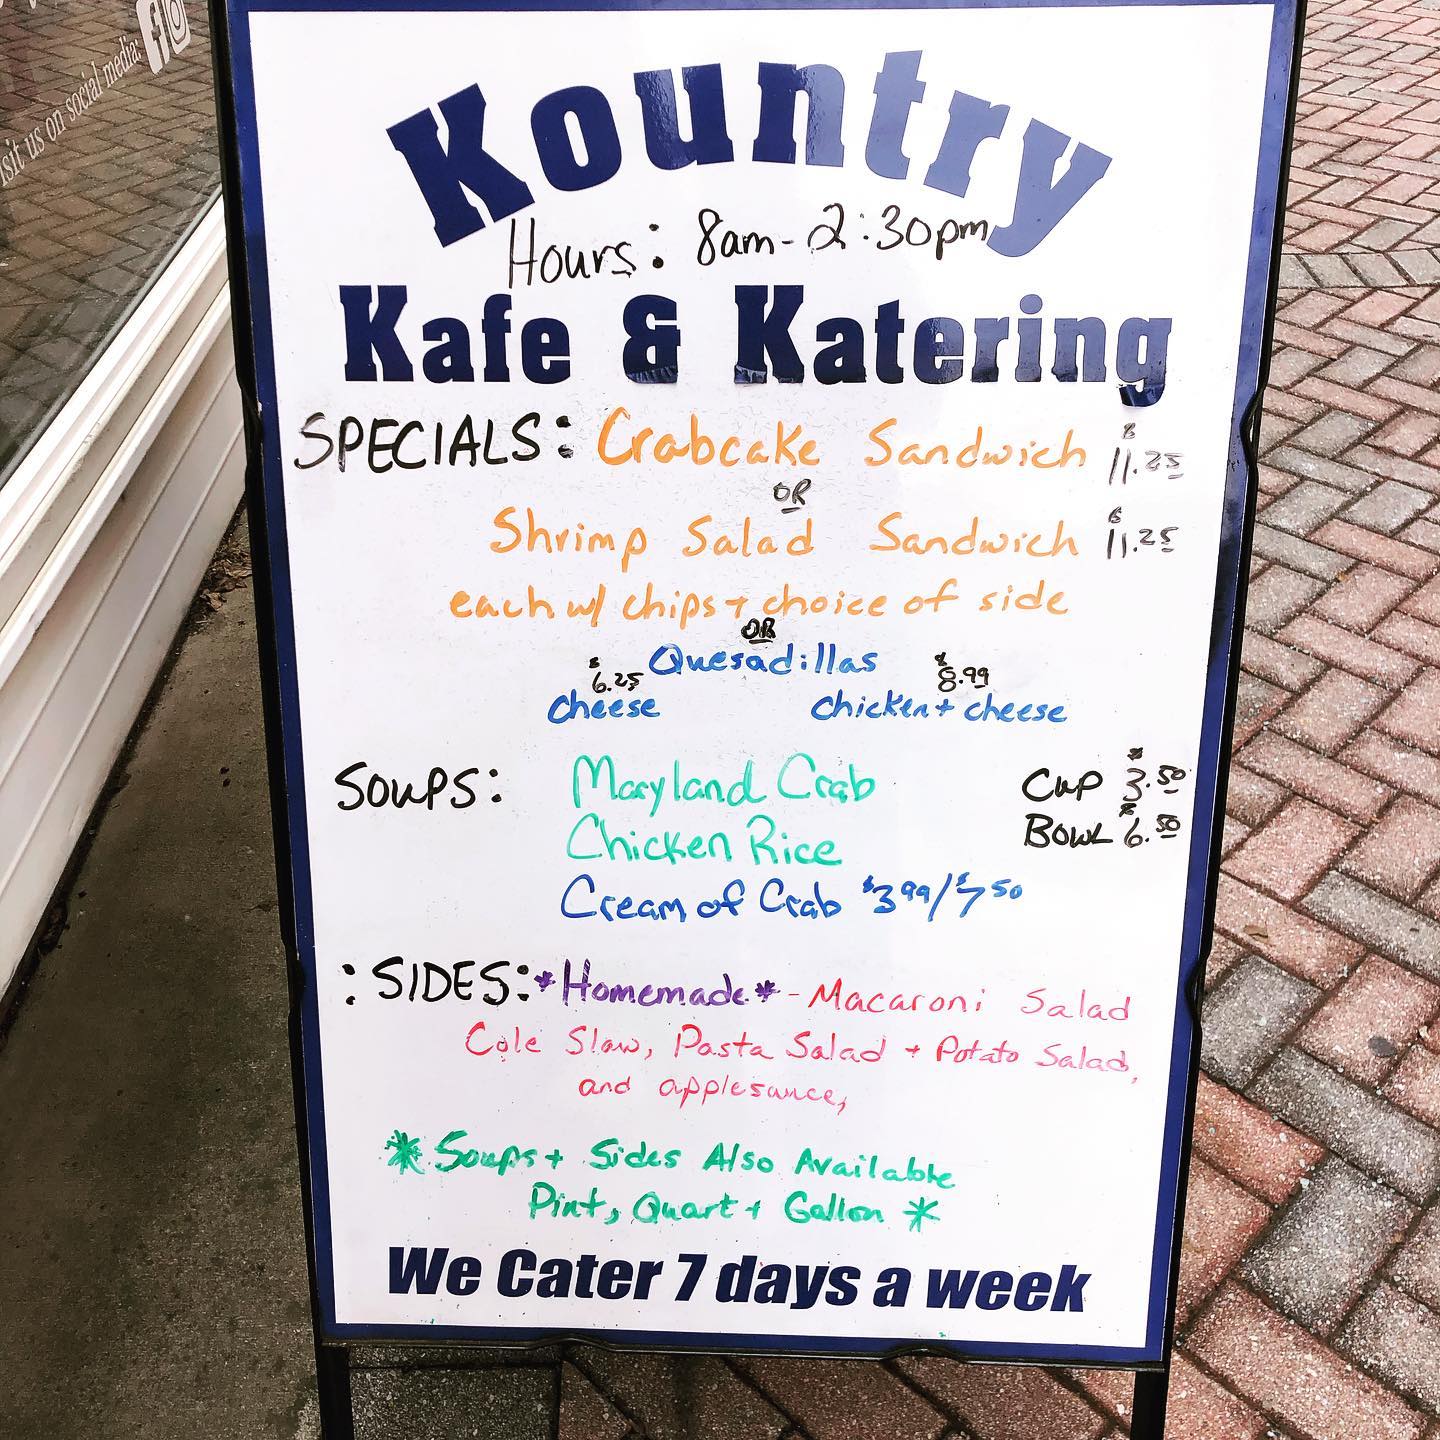 isit us on social media:
Kountry
Hours: 8am-2:30pm
Kafe & Katering
SPECIALS: Crabcake Sandwich $11.25
OR
Shrimp Salad Sandwich $11.25
each w/ chips + choice of side
OR
Quesadillas
$6.25 $8.99
cheese chicken + cheese
SOUPS: Maryland Crab Cup $3.50
Chicken Rice Bowl $6.50
Cream of Crab $3.99/$7.50
: SIDES: *Homemade* - Macaroni Salad
Cole Slaw, Pasta Salad + Potato Salad,
and applesauce,
* Soups + Sides Also Available
Pint, Quart + Gallon *
We Cater 7 days a week